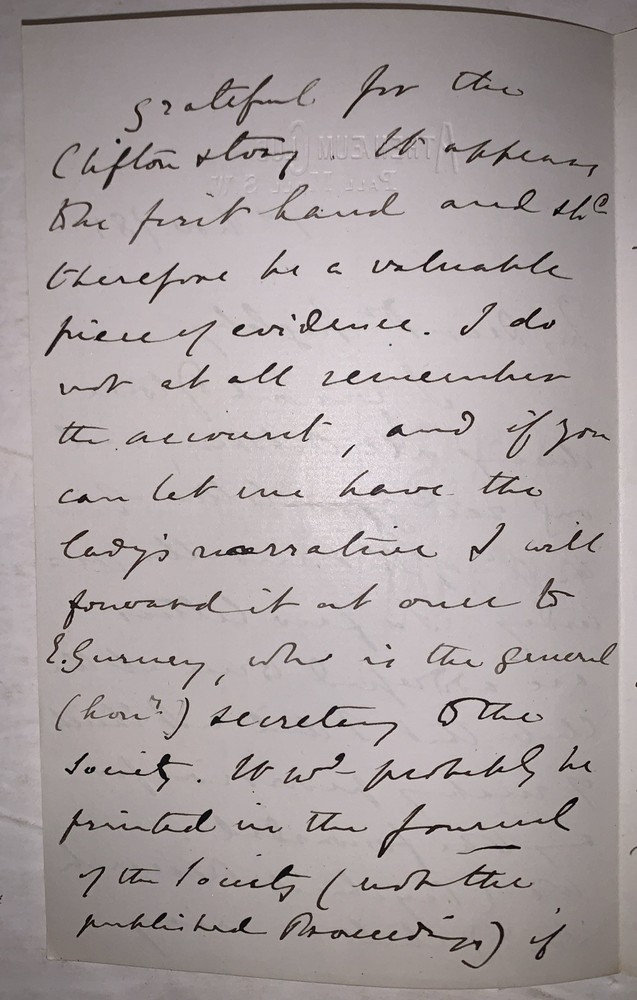 grateful for the
Clifton story. It appears
to be first hand and shd
therefore be a valuable
piece of evidence. I do
not at all remember
the account, and if you
can let me have the
lady's narrative I will
forward it at once to
E. Gurney, who is the general
(hony.) secretary to the
Society. It wd probably be
printed in the Journal
of the Society (not the
published Proceedings) if